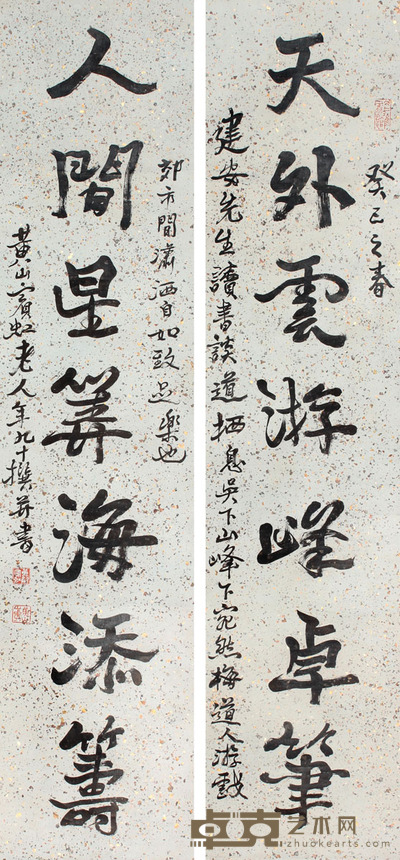 癸巳之春
天外雲游峰卓筆
建安先生讀書談道栖息吳下山峰下宛然梅道人游戲
郊市間瀟洒自如致足樂也
人間星算海添籌
黃山賓虹老人年九十撰并書
卓克艺术网
zhuokearts.com